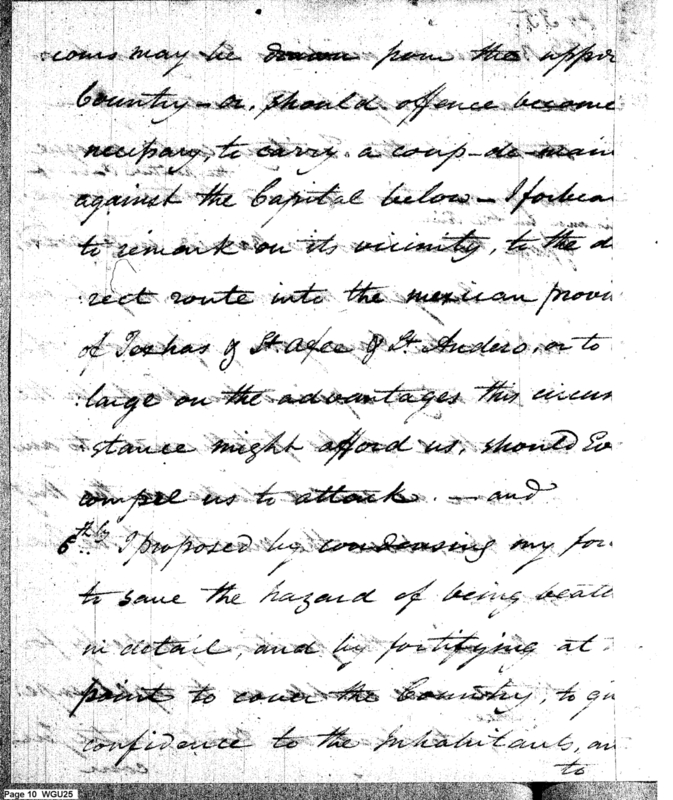 cours may be drawn from the upper
Country – or, should offence become
necessary, to carry a coup-de-main
against the Capital below – I forbear
to remark on its vicinity, to the d
rect route into the mexican provi
of Texhas & St. afee & St. Andero, or to
large on the advantages this circum
stance might afford us, should Ev
compel us to attack. – and
6thly. I proposed by condensing my for
to save the hazard of being beate
in detail, and by fortifying at
point to cover the Country, to giv
confidence to the Inhabitants, an
to
Page 10 WGU25